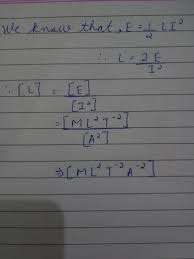 We know that, E = 1/2 LI²
∴ L = 2E/I²
∴ [L] = [E]/[I²]
= [ML²T⁻²]/[A²]
⇒ [ML²T⁻²A⁻²]